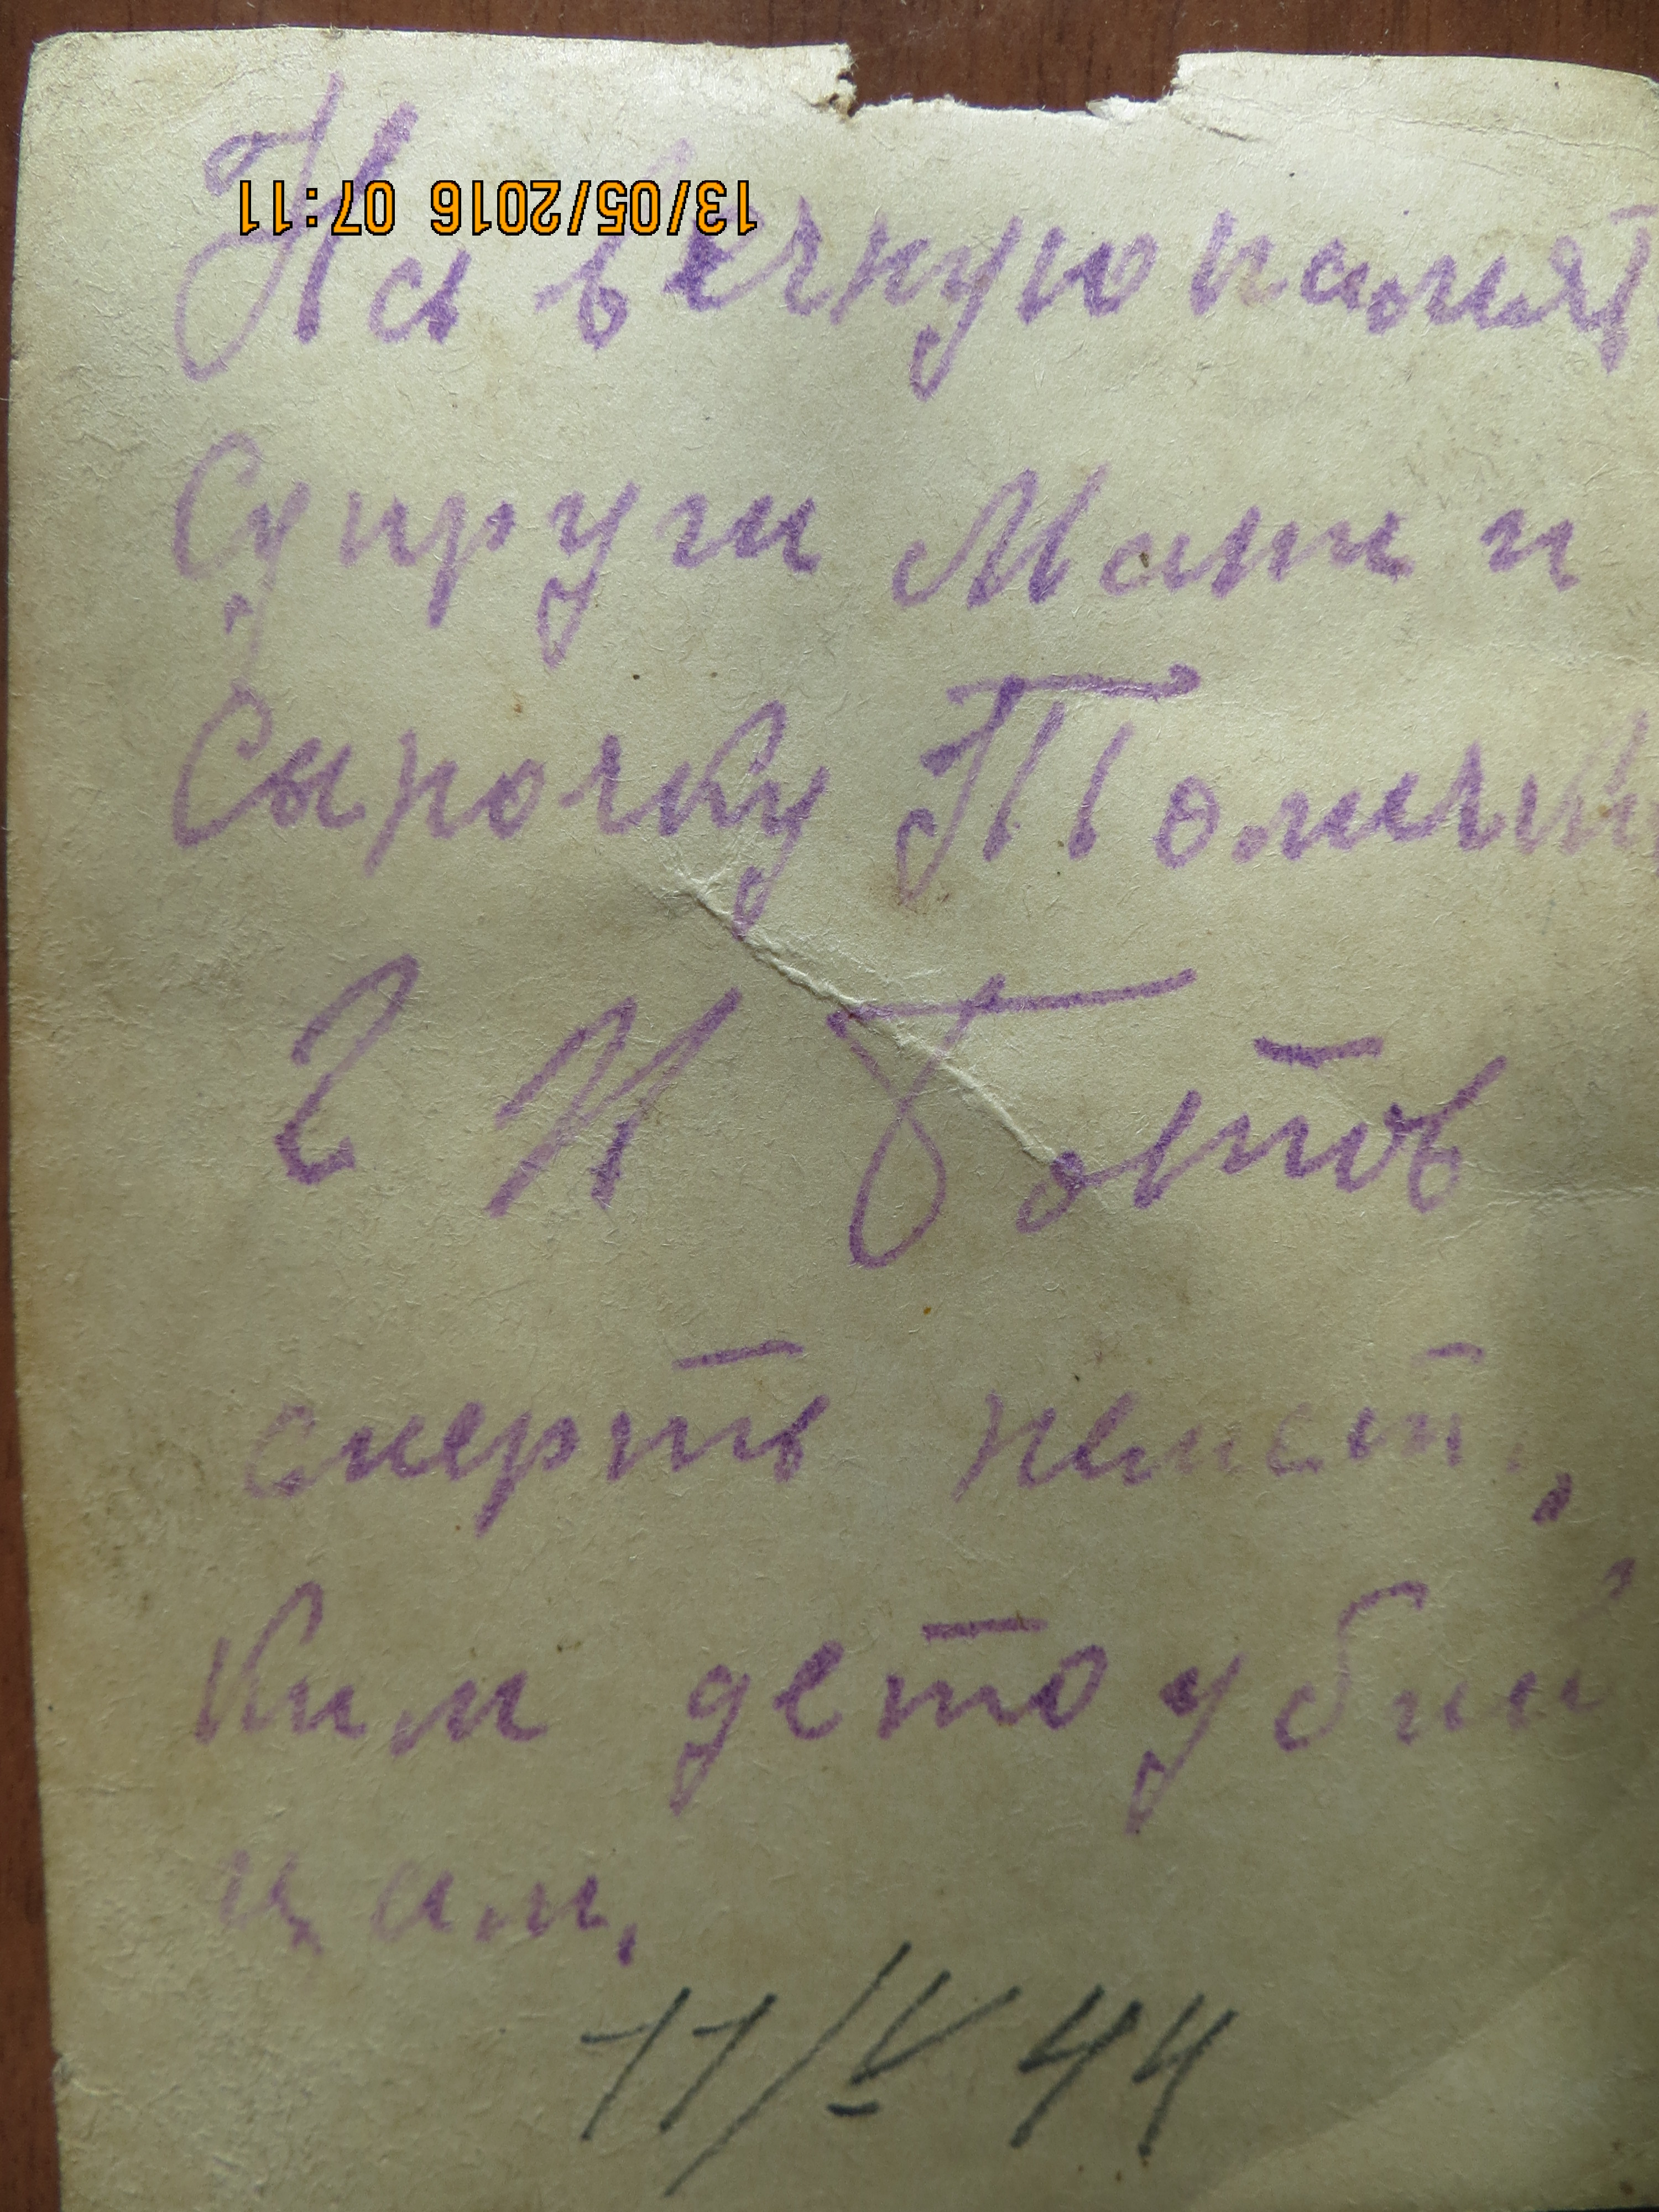 13/05/2016 07:11
На вечную памят
Супруги Мани и
Сыночку Толичк
смерть
ким детоубий
цам,
11/IV 44